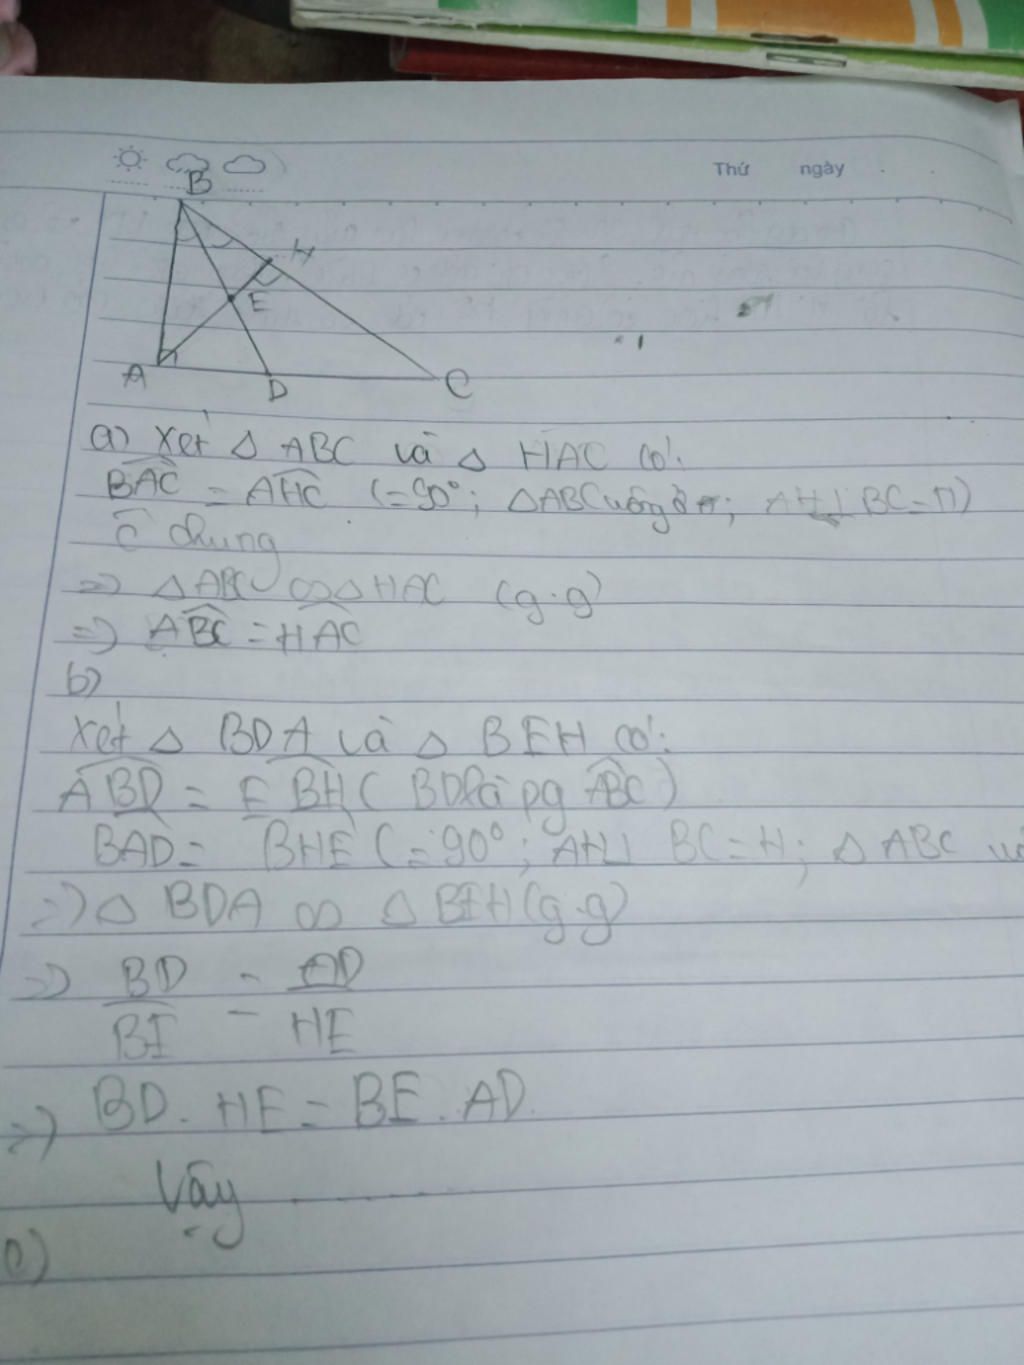 Thứ ngày
B
H
E
A D C
a) Xét △ ABC và △ HAC có:
BAC = AHC (=90°; △ABC vuông ở A; AH⊥ BC = H)
C chung
=> △ABC ∽ △HAC (g.g)
=> ABC = HAC
b)
Xét △ BDA và △ BEH có:
ABD = EBH ( BD là pg ABC )
BAD = BHE (=90°; AH⊥ BC = H; △ ABC
=> △ BDA ∽ △ BEH (g.g)
=> BD = AD
BE HE
=> BD. HE = BE. AD.
Vậy
c)